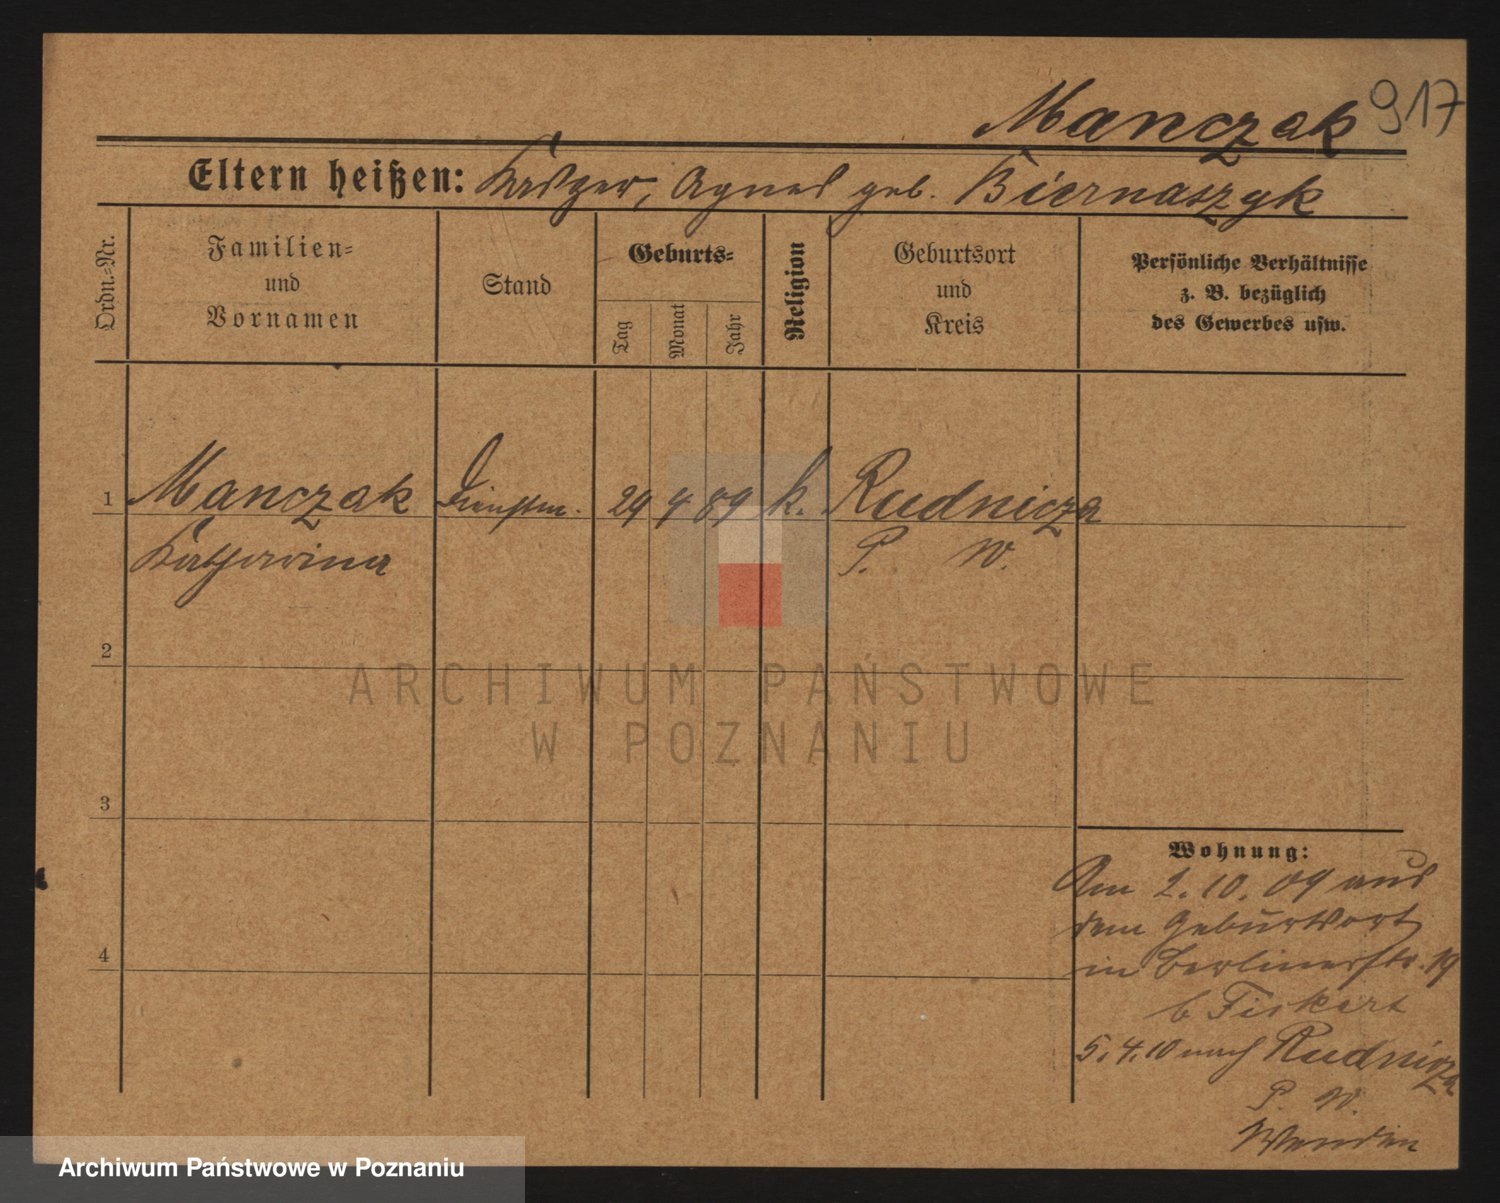 Manczak 917
Eltern heißen: Kasper, Agnes geb. Biernaszyk
Ordn.-Nr.
Familien-
und
Vornamen
Stand
Geburts-
Tag
Monat
Jahr
Religion
Geburtsort
und
Kreis
Persönliche Verhältnisse
z. B. bezüglich
des Gewerbes usw.
1 Manczak Dienstm. 29 4 89 k. Rudnicza
Katharina P. W.
2
3
4
Wohnung:
Am 2. 10. 09 aus
dem Geburtsort
in Berlinerstr. 19
b Fiskert
5. 4. 10 nach Rudnicza
P. W.
ARCHIWUM PAŃSTWOWE
W POZNANIU
Archiwum Państwowe w Poznaniu